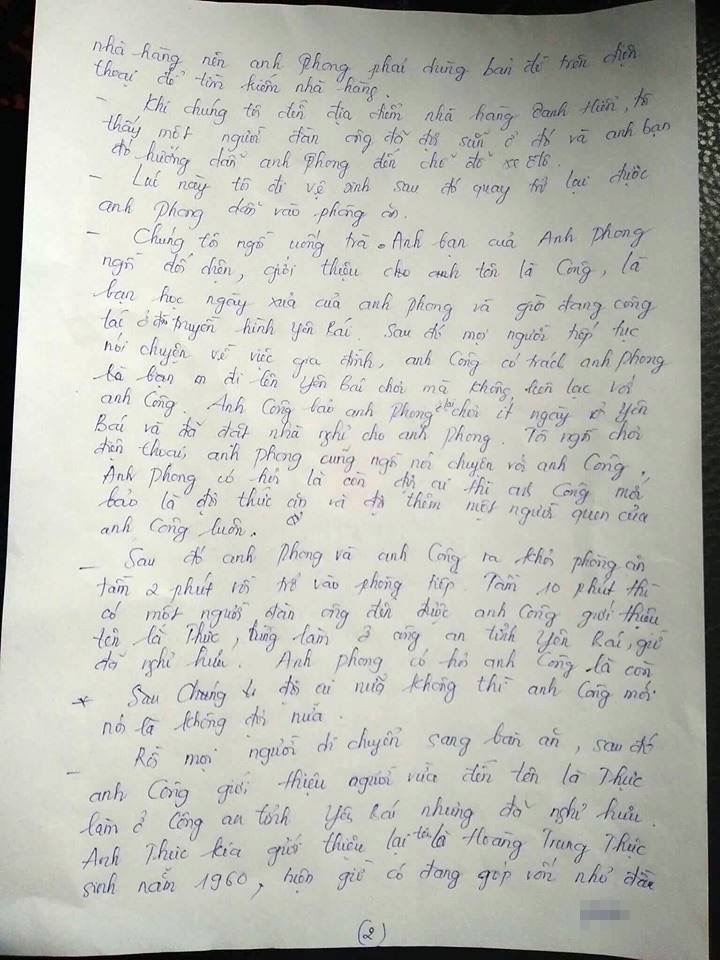 nhà hàng nên anh Phong phải dùng bản đồ trên điện
thoại để tìm kiếm nhà hàng.
- Khi chúng tôi đến địa điểm nhà hàng Danh Hiền, tôi
thấy một người đàn ông đã đợi sẵn ở đó và anh bạn
đó hướng dẫn anh Phong đến chỗ để xe ôtô.
- Lúc này tôi đi vệ sinh sau đó quay trở lại được
anh Phong dẫn vào phòng ăn.
- Chúng tôi ngồi uống trà. Anh bạn của Anh Phong
ngồi đối diện, giới thiệu cho anh tên là Công, là
bạn học ngày xưa của anh phong và giờ đang công
tác ở đài truyền hình Yên Bái. Sau đó mọi người tiếp tục
nói chuyện về việc gia đình, anh Công có trách anh phong
là bạn đi lên Yên Bái chơi mà không liên lạc với
anh Công. Anh Công bảo anh Phong ở lại chơi ít ngày ở Yên
Bái và đã đặt nhà nghỉ cho anh Phong. Tôi ngồi chơi
điện thoại, anh phong cũng ngồi nói chuyện với anh Công.
Anh Phong có hỏi là còn đợi ai thì anh Công mới
bảo là đợi thức ăn và đợi thêm một người quen của
anh Công luôn.
- Sau đó anh Phong và anh Công ra khỏi phòng ăn
tầm 2 phút rồi trở vào phòng tiếp. Tầm 10 phút thì
có một người đàn ông đến được anh Công giới thiệu
tên là Thức, từng làm ở công an tỉnh Yên Bái, giờ
đã nghỉ hưu. Anh phong có hỏi anh Công là còn
* Sau Chúng đợi ai nữa không thì anh Công mới
nói là không đợi nữa.
- Rồi mọi người di chuyển sang bàn ăn, sau đó
anh Công giới thiệu người vừa đến tên là Thực
làm ở Công an tỉnh Yên Bái nhưng đã nghỉ hưu.
Anh Thực kia giới thiệu lại tên là Hoàng Trung Thực
sinh năm 1960, hiện giờ có đang góp vốn nhỏ đầu
(2)